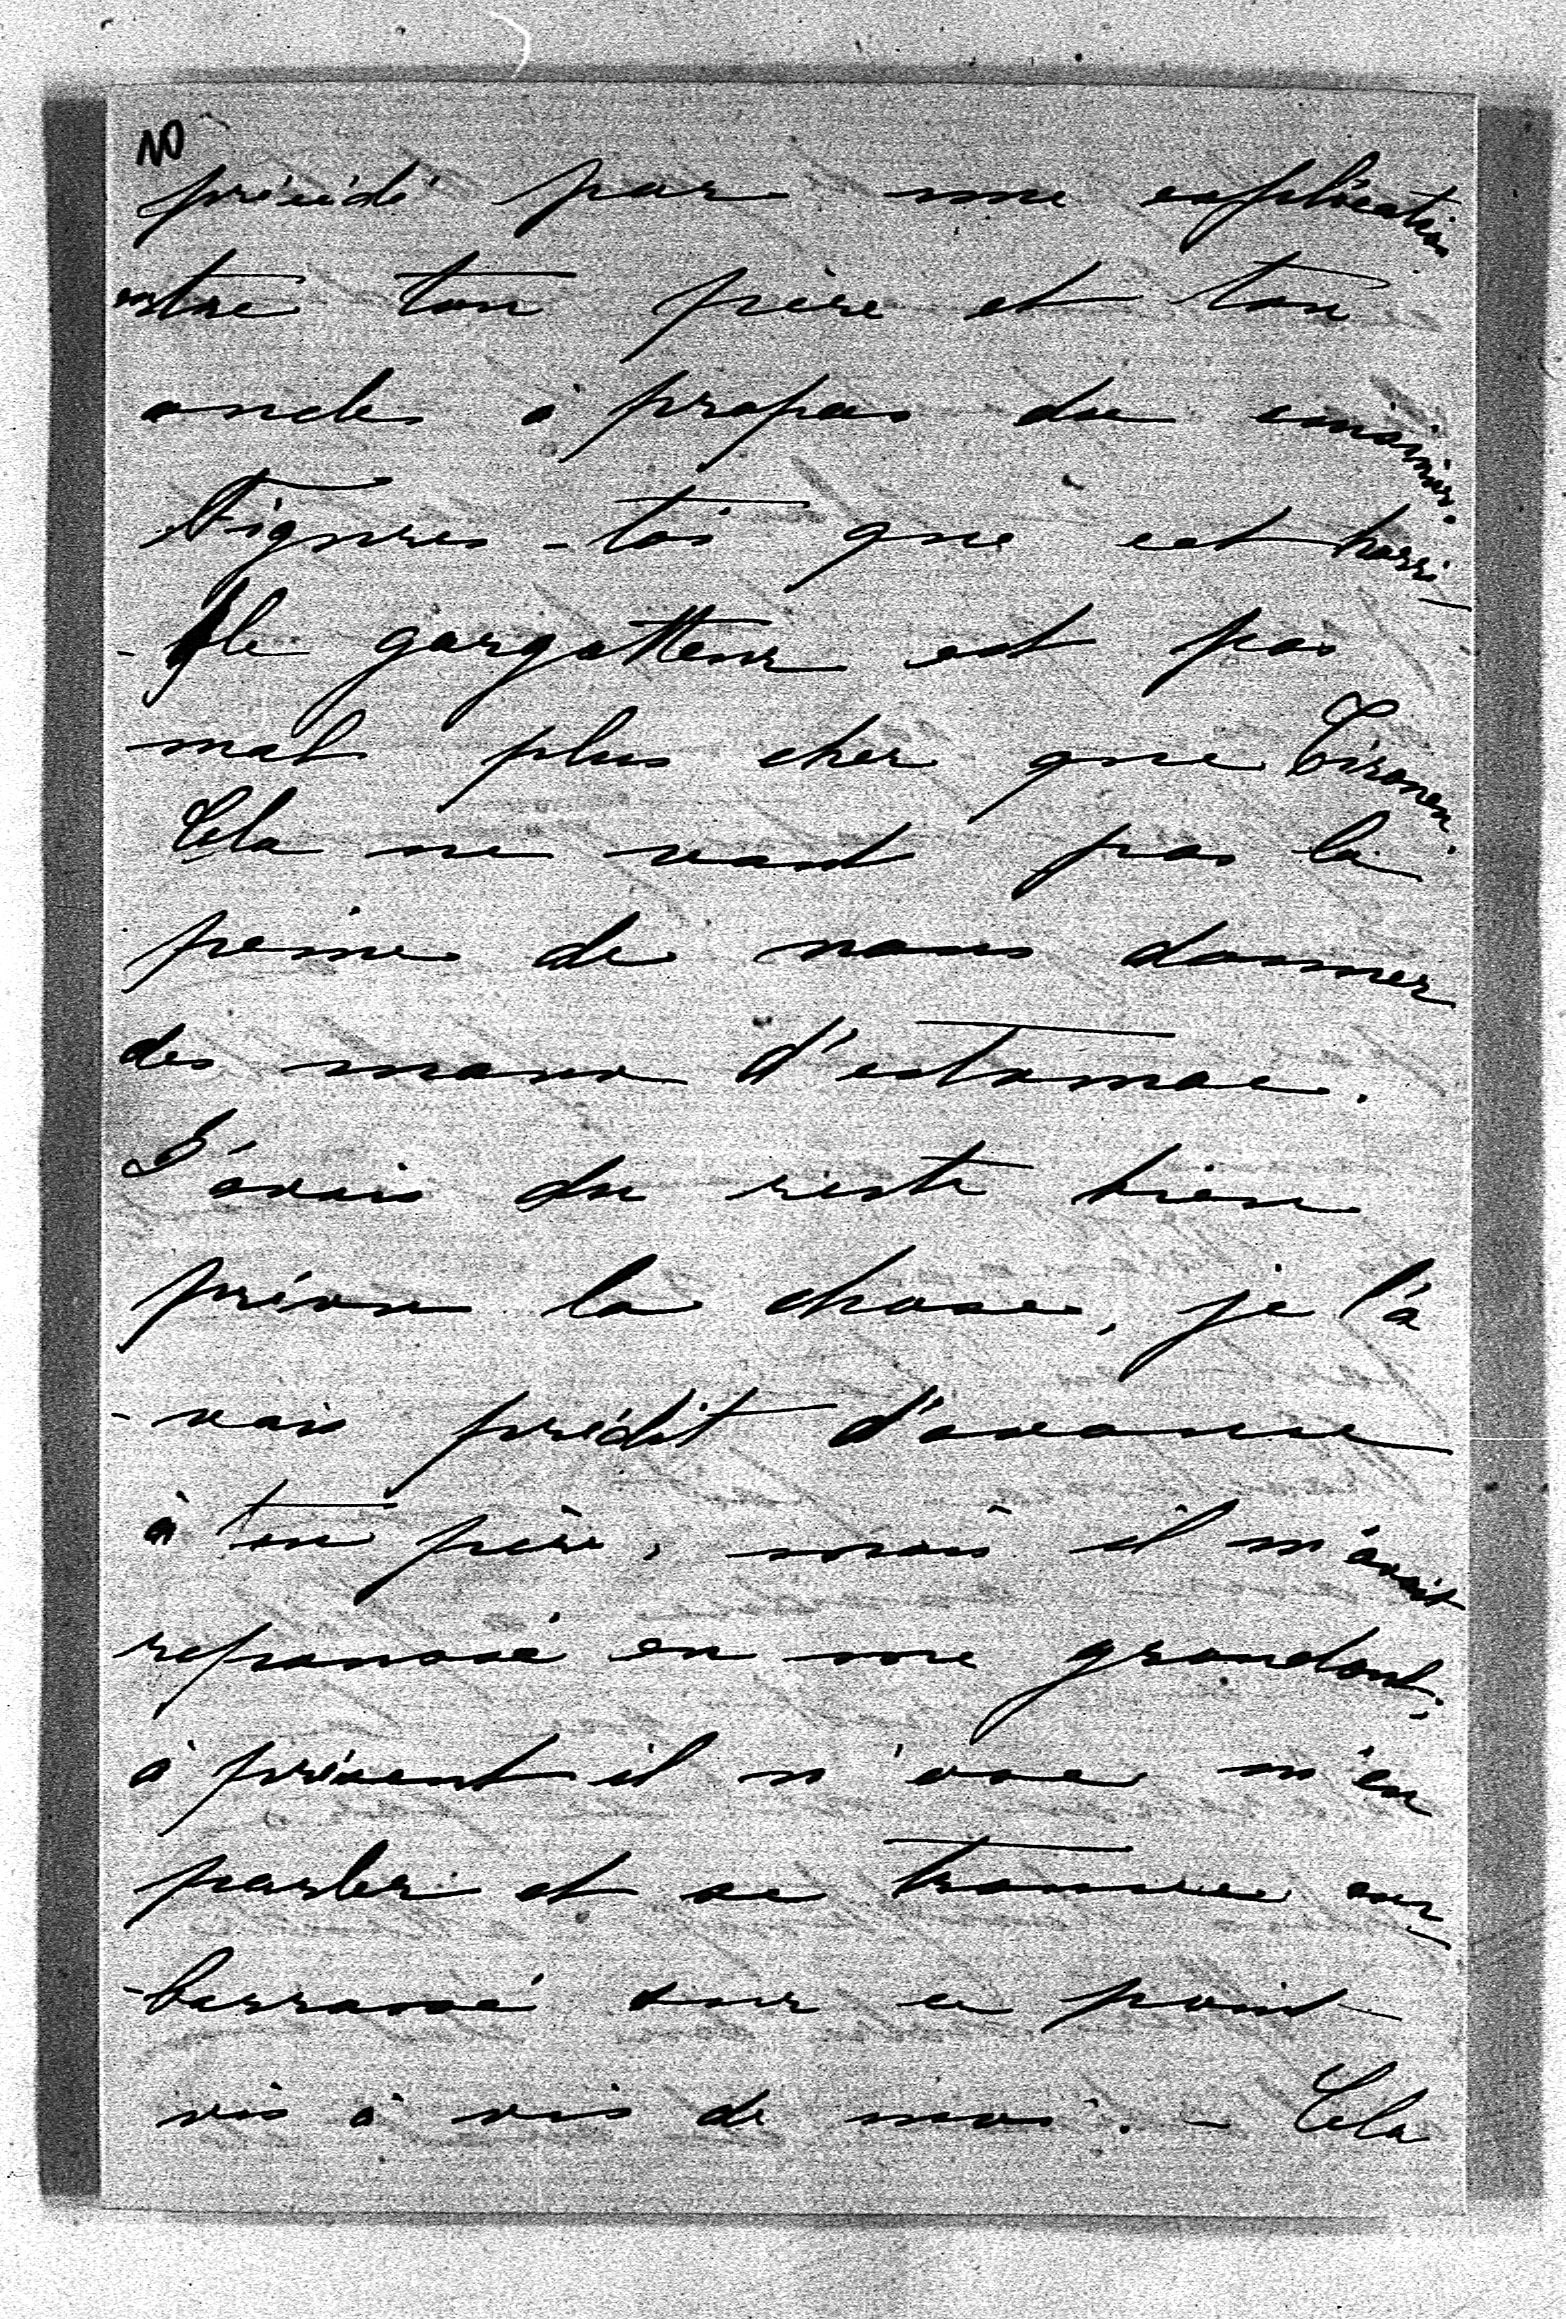 10
précédé par une explication
entre ton père et ton
oncle à propos du cuisinier.
Figures-toi que cet horri-
-ble gargotteur est pas
mal plus cher que
Cela ne vaut pas la
peine de nous donner
des maux d'estomac.
J'avais du reste bien
prévu la chose, je l'a
-vais prédit d'avance
à ton père, mais il m'avait
repoussé en me grondant;
à présent il n'ose m'en
parler et se trouve em
-barrassé sur ce point
vis à vis de moi. - Cela